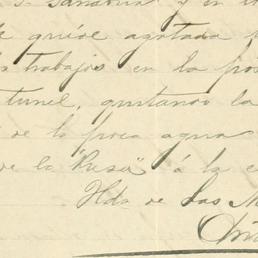 y en
quede agotada
trabajos en la
tunel, quitando la
de la poca agua
de la "Presa" á la
Hda de Las M